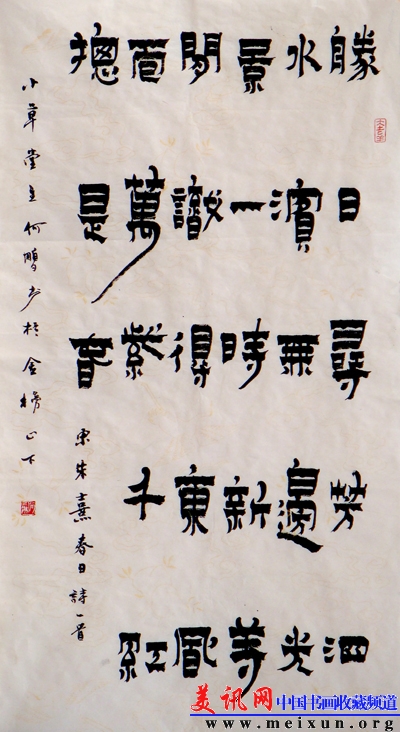 勝日尋芳泗
水濱無邊光
景一時新等
閒識得東風
面萬紫千紅
摠是春
宋朱熹春日詩一首
小草堂主何鵬书於金榜山下
美讯网
中国书画收藏频道
www.meixun.org